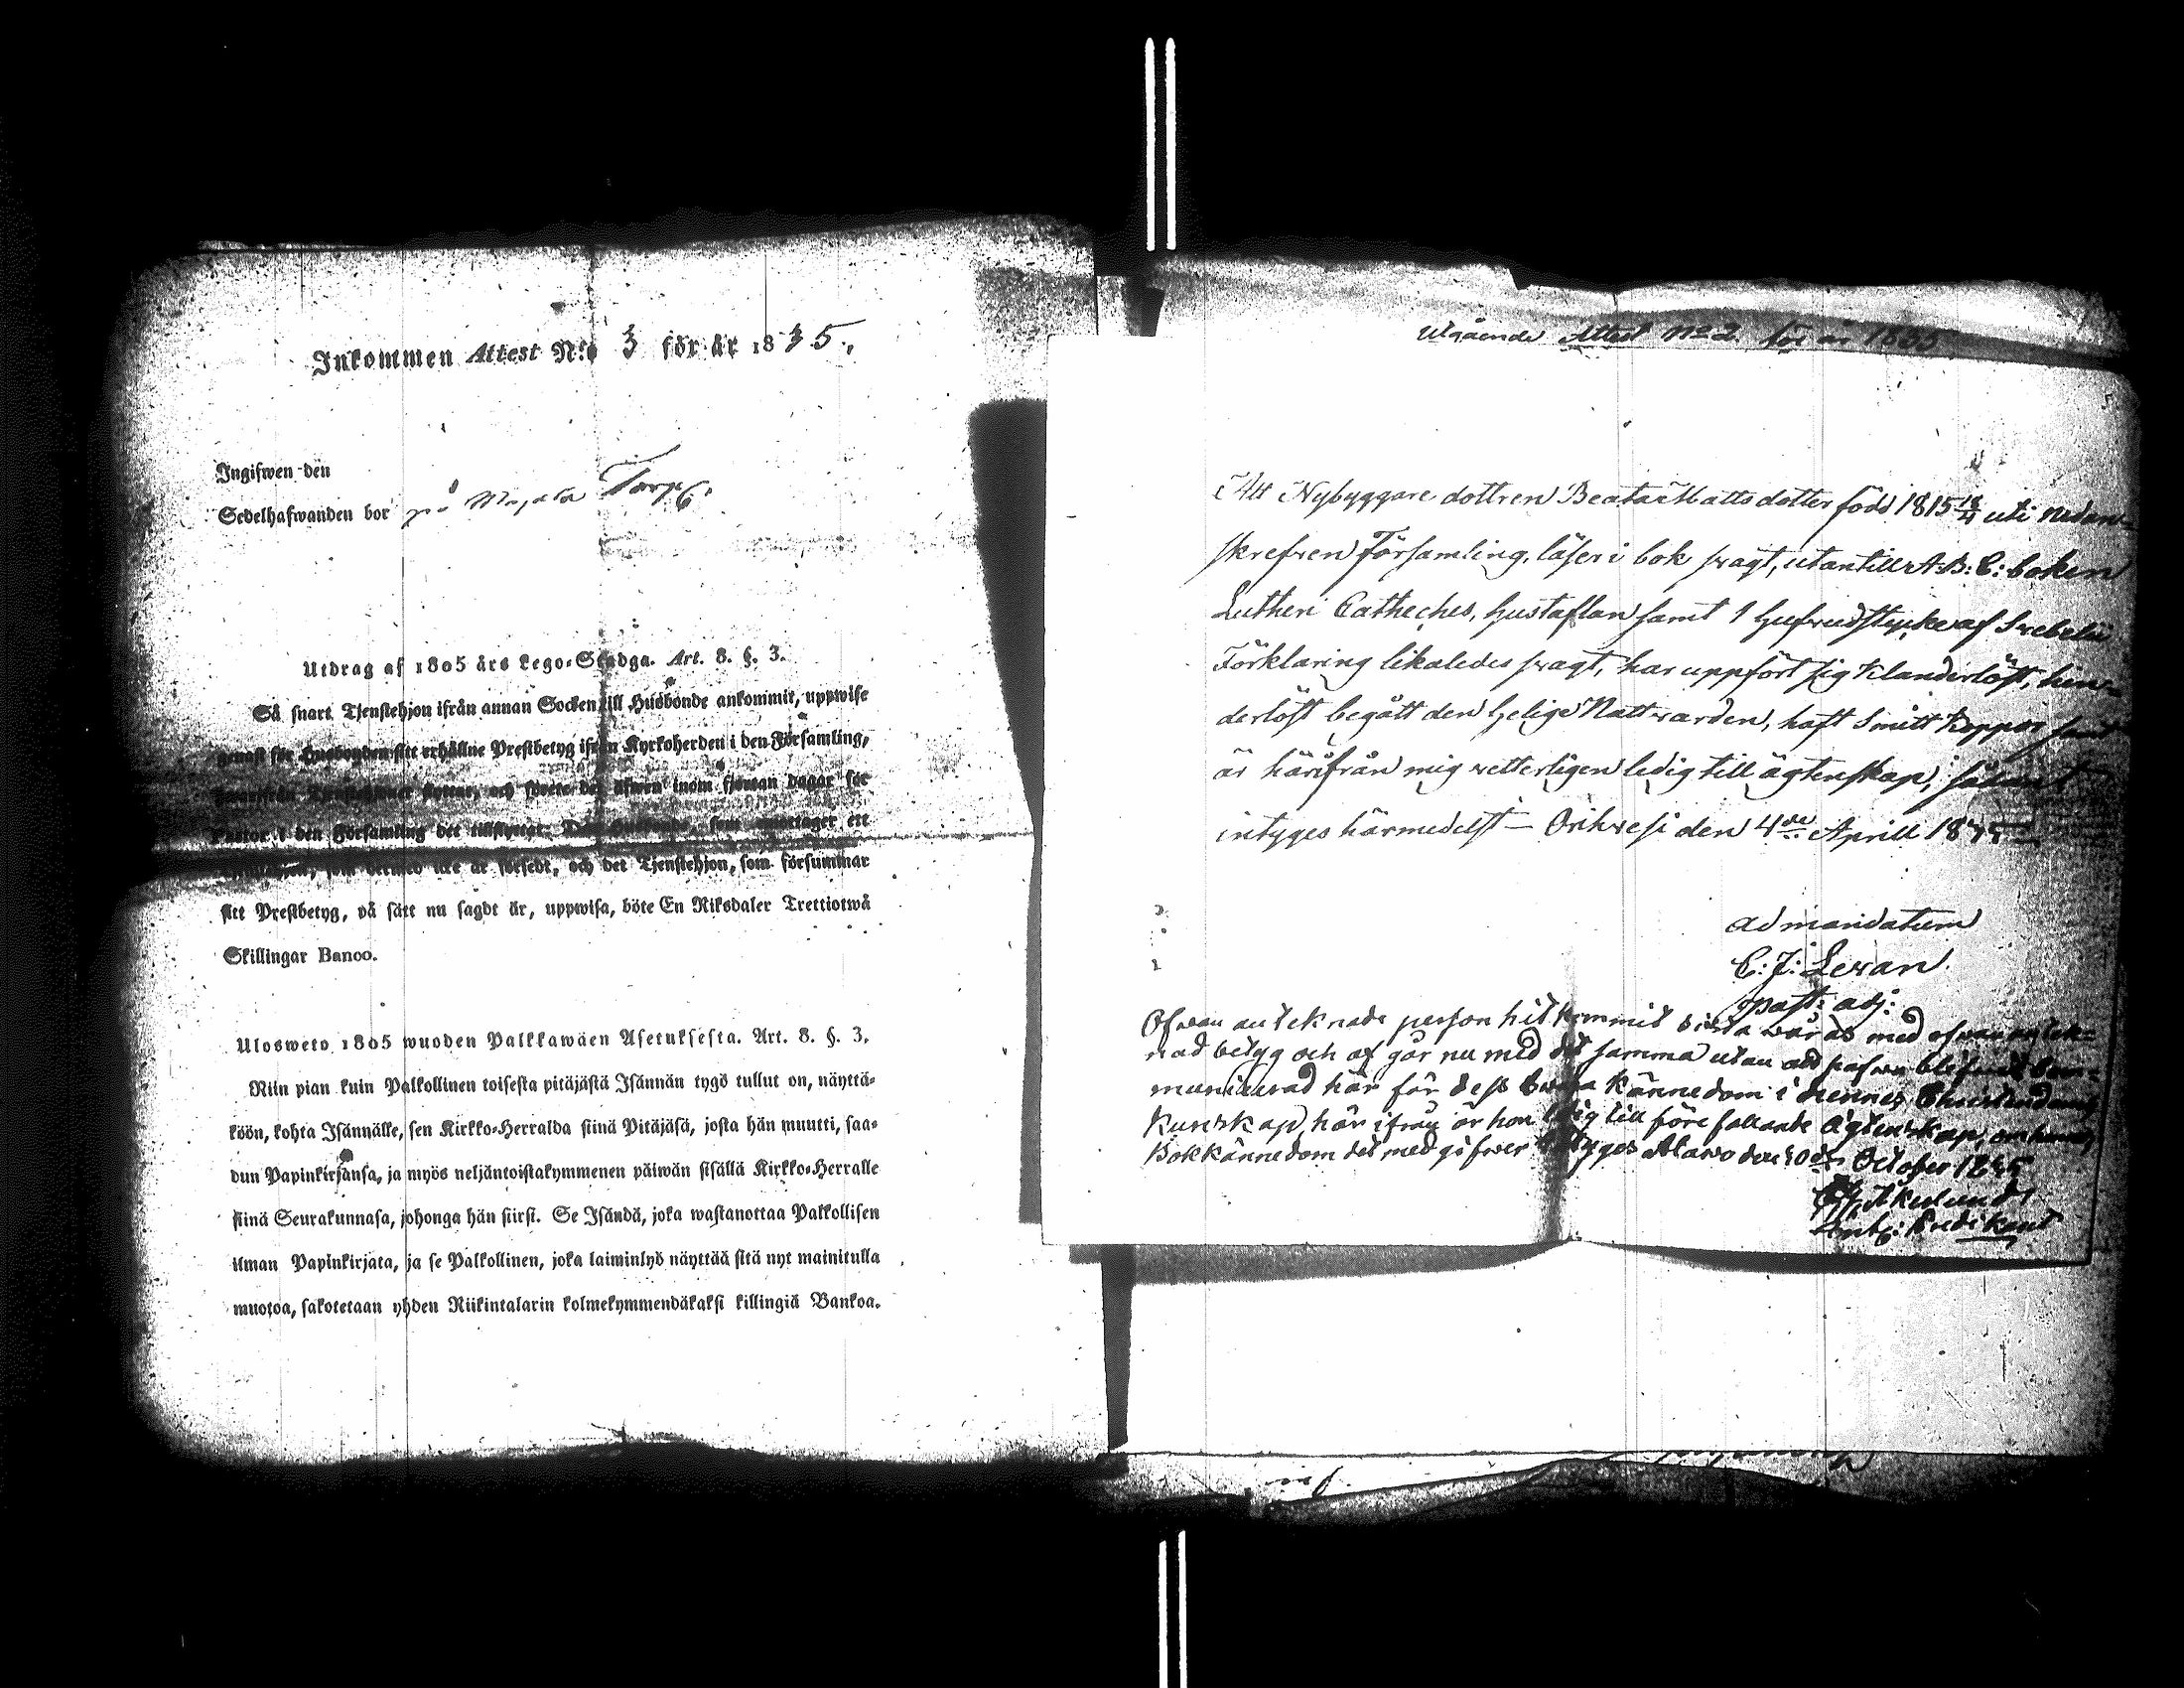 Inkommen Attest N:o 3 för år 1835.
Ingifwen den
Sedelhafwanden bor på Majala Torp.
Utdrag af 1805 års Lego-Stadga. Art. 8. §. 3.
Så snart Tjenstehjon ifrån annan Socken till Husbonde ankommit, uppwise
genast för Husbonden sitt erhållne Prestbetyg ifrån Kyrkoherden i den Församling,
Tjenstehjonet flyttat, och det äfwen inom fjorton dagar för
Pastor i den Församling det tillflyttat. som emottager ett
som dermed icke är försedt, och det Tjenstehjon, som försummar
sitt Prestbetyg, på sätt nu sagdt är, uppwisa, böte En Riksdaler Trettiotwå
Skillingar Banco.
Ulosweto 1805 wuoden Palkkawäen Asetuksesta. Art. 8. §. 3.
Niin pian kuin Palkollinen toisesta pitäjästä Isännän tygö tullut on, näyttä-
köön, kohta Isännälle, sen Kirkko-Herralda siinä Pitäjäsä, josta hän muutti, saa-
dun Papinkirjansa, ja myös neljäntoistakymmenen päiwän sisällä Kirkko-Herralle
siinä Seurakunnasa, johonga hän siirsi. Se Isändä, joka wastanottaa Palkollisen
ilman Papinkirjata, ja se Palkollinen, joka laiminlyö näyttää sitä nyt mainitulla
muotoa, sakotetaan yhden Riikintalarin kolmekymmendäkaksi killingiä Bankoa.
Utgående Attest No 2 för år 1835
Att Nybyggare dottren Beata Mattsdotter född 1815 18/4 uti nedan-
skrefven Församling, läser i bok swagt, utantill A:B:C: boken
Lutheri Catheches, hustaflan samt 1 hufwudstycke af Swebelii
Förklaring likaledes swagt, har uppfört sig klanderlöst, hin-
derlöst begått den helige Nattwarden, haft Smitt koppor samt
är härifrån mig wetterligen ledig till ägtenskap; sådant
intyges härmedelst — Orihwesi den 4de Aprill 1835
ad mandatum
C: J: Lewan.
past: adj:
Ofwan antecknade person hitkommit sista wåras med ofwan anteck-
nad betyg och af går nu med det samma utan att hafwa blifwit kom-
municerad här för dess swaga kännedom i hennes Christendoms
kunskap, här ifrån är hon ledig till före fallande ägtenskap, om hennes
Bokkännedom det medgifwer betygas Alawo den 30de October 1835
Åkerlund
Predikant